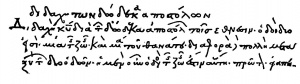 Διδαχὴ τῶν δώδεκα ἀποστόλων
Διδαχὴ κυ διὰ τῶν δώδεκα ἀποστόλων τοῖς ἔθνεσιν. ὁδοὶ δύο
εἰσί· μία τῆς ζωῆς καὶ μία τοῦ θανάτου· διαφορὰ δὲ πολλὴ μετα
ξὺ τῶν δύο ὁδῶν· ἡ μὲν οὖν ὁδὸς τῆς ζωῆς ἐστιν αὕτη· πρῶτον